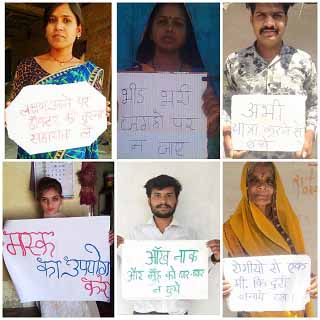 लक्षण आने पर
डॉक्टर की तुरन्त
सहायता ले
भीड़ भरी
जगहों पर
न जाए
अभी
यात्रा करने से
बचे
मास्क
का उपयोग
करें
आँख नाक
और मुँह को बार-बार
न छुये
रोगीयो से एक
मी. कि दुरी
बनाये रखे।